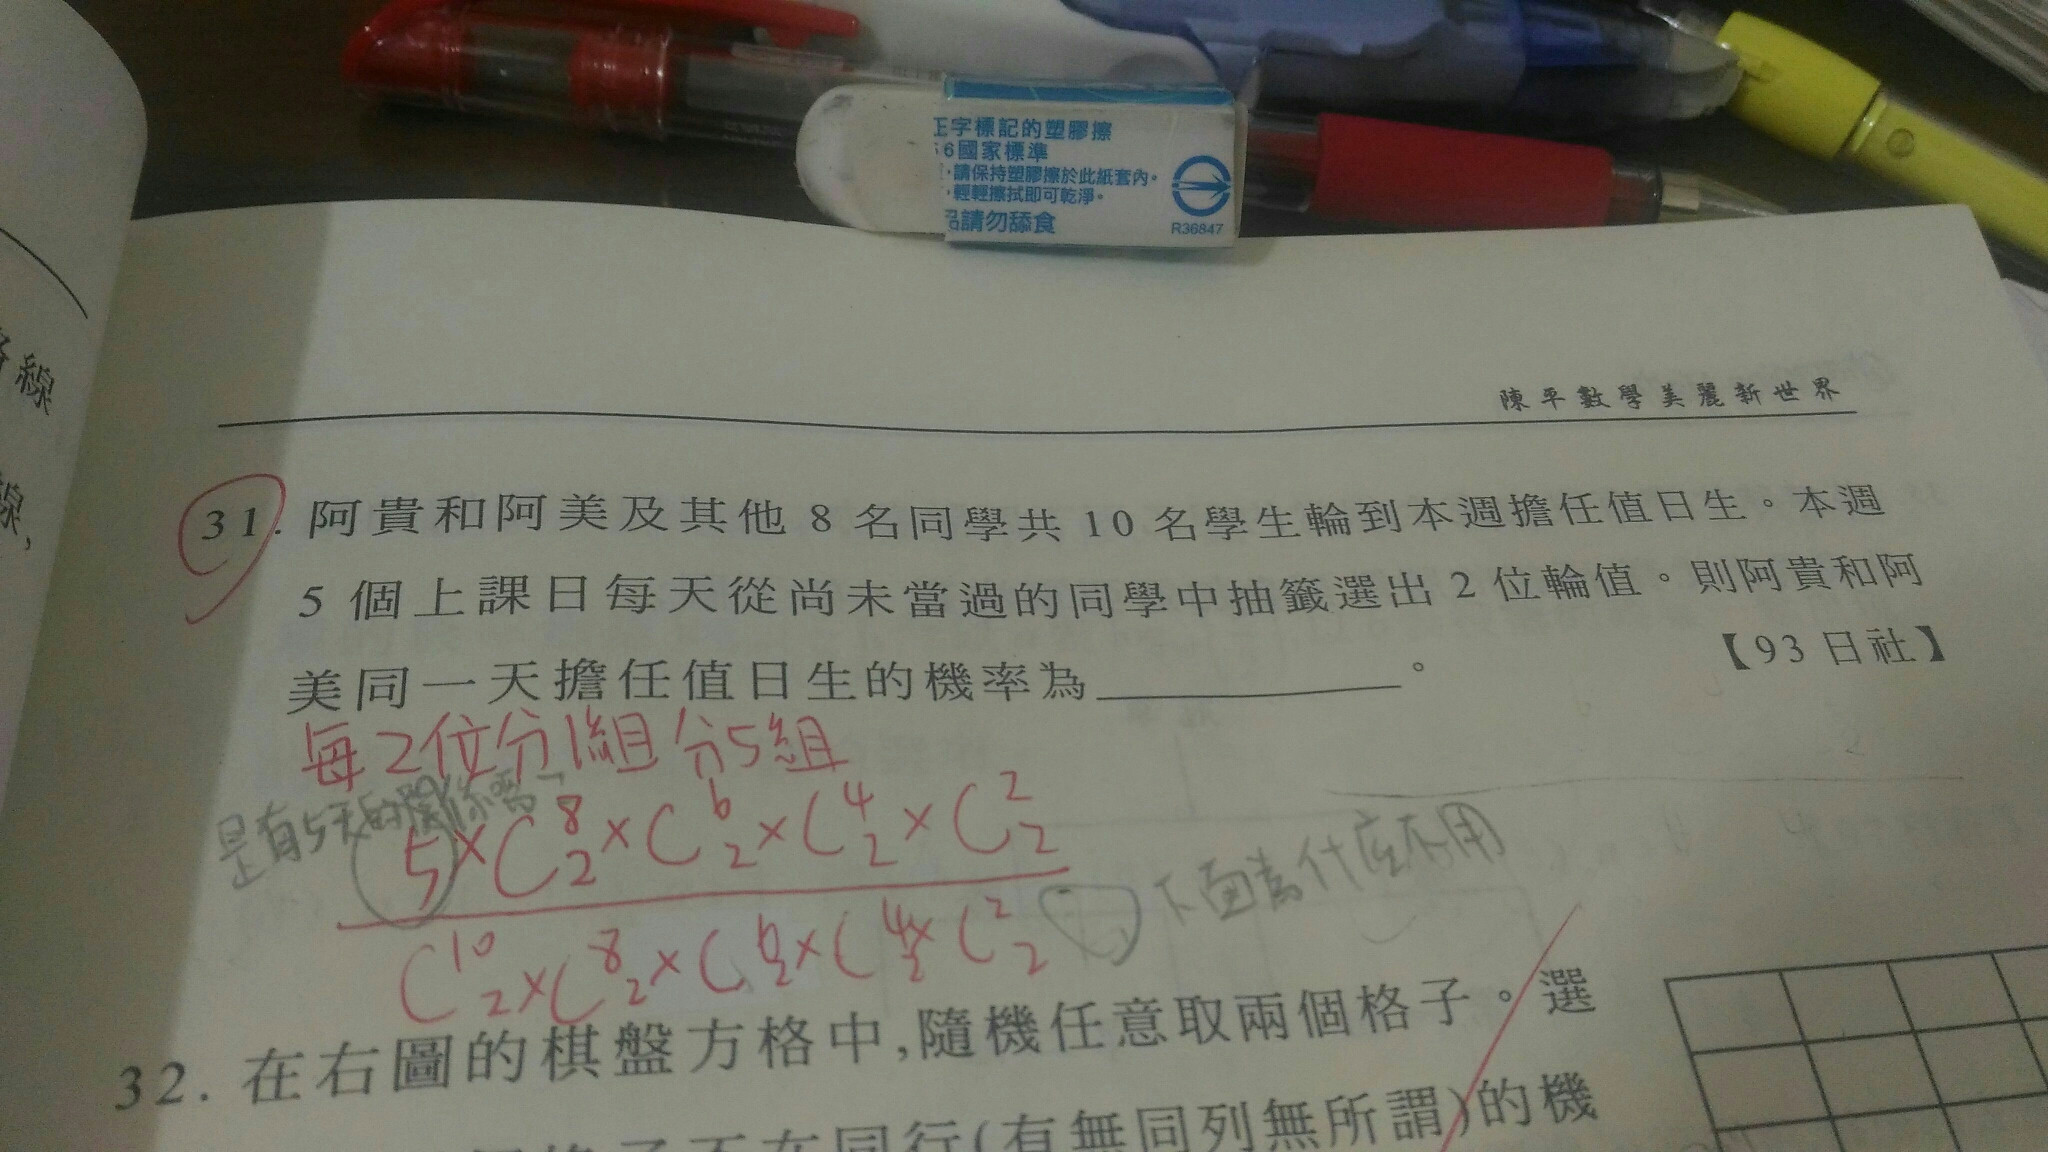 正字標記的塑膠擦
6國家標準
·請保持塑膠擦於此紙套內。
·輕輕擦拭即可乾淨。
請勿舔食
R36847
線
線,
陳平數學美麗新世界
31. 阿貴和阿美及其他 8 名同學共 10 名學生輪到本週擔任值日生。本週
5 個上課日每天從尚未當過的同學中抽籤選出 2 位輪值。則阿貴和阿
美同一天擔任值日生的機率為。
【93 日社】
每2位分1組 分5組
是有5天的關係嗎
5×C⁸₂×C⁶₂×C⁴₂×C²₂
下面為什麼不用
C¹⁰₂×C⁸₂×C⁶₂×C⁴₂×C²₂
32. 在右圖的棋盤方格中,隨機任意取兩個格子。選
不在同行(有無同列無所謂)的機